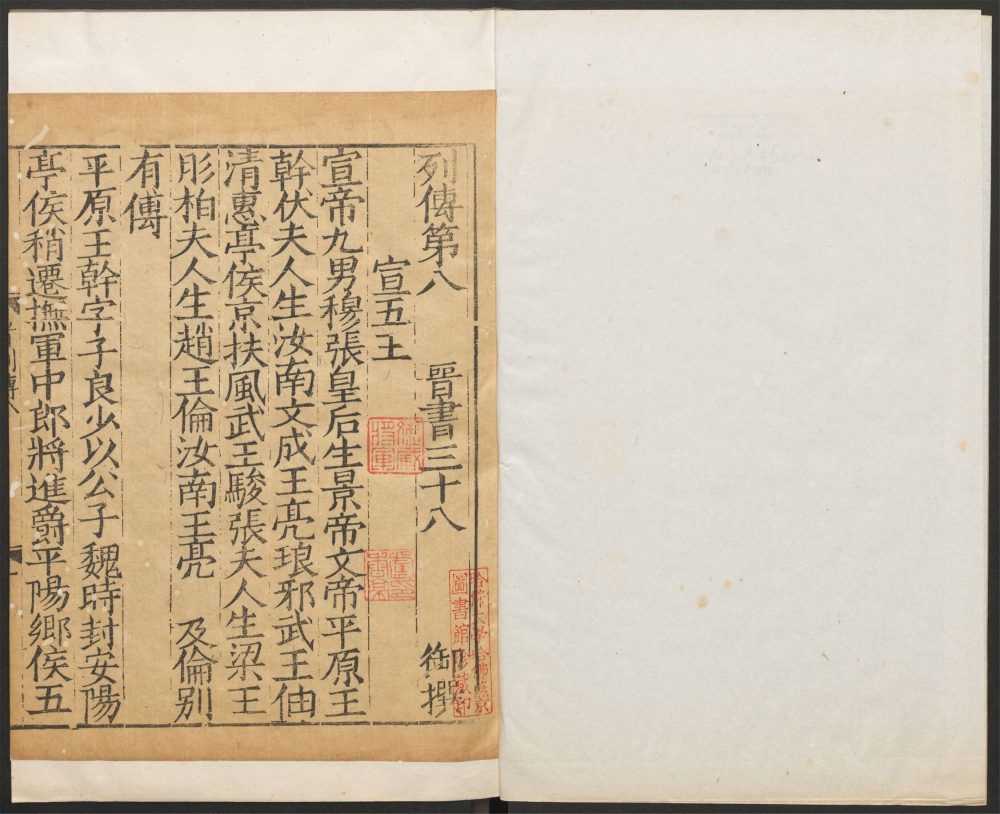 列傳第八 晉書三十八 御撰
宣五王
宣帝九男穆張皇后生景帝文帝平原王
幹伏夫人生汝南文成王亮琅邪武王伷
清惠亭侯京扶風武王駿張夫人生梁王
肜柏夫人生趙王倫汝南王亮 及倫別
有傳
平原王幹字子良少以公子魏時封安陽
亭侯稍遷撫軍中郎將進爵平陽鄉侯五
哈佛大學哈佛燕京
圖書館珍藏印